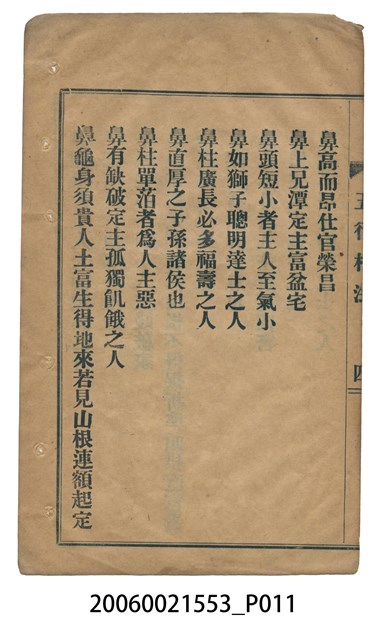 五行相法
四
鼻高而昂仕官榮昌
鼻上兄潭定主富盆宅
鼻頭短小者主人至氣小
鼻如獅子聰明達士之人
鼻柱廣長必多福壽之人
鼻直厚之子孫諸侯也
鼻柱單泊者為人主惡
鼻有缺破定主孤獨飢餓之人
鼻龜身須貴人土富生得地來若見山根連額起定
20060021553_P011